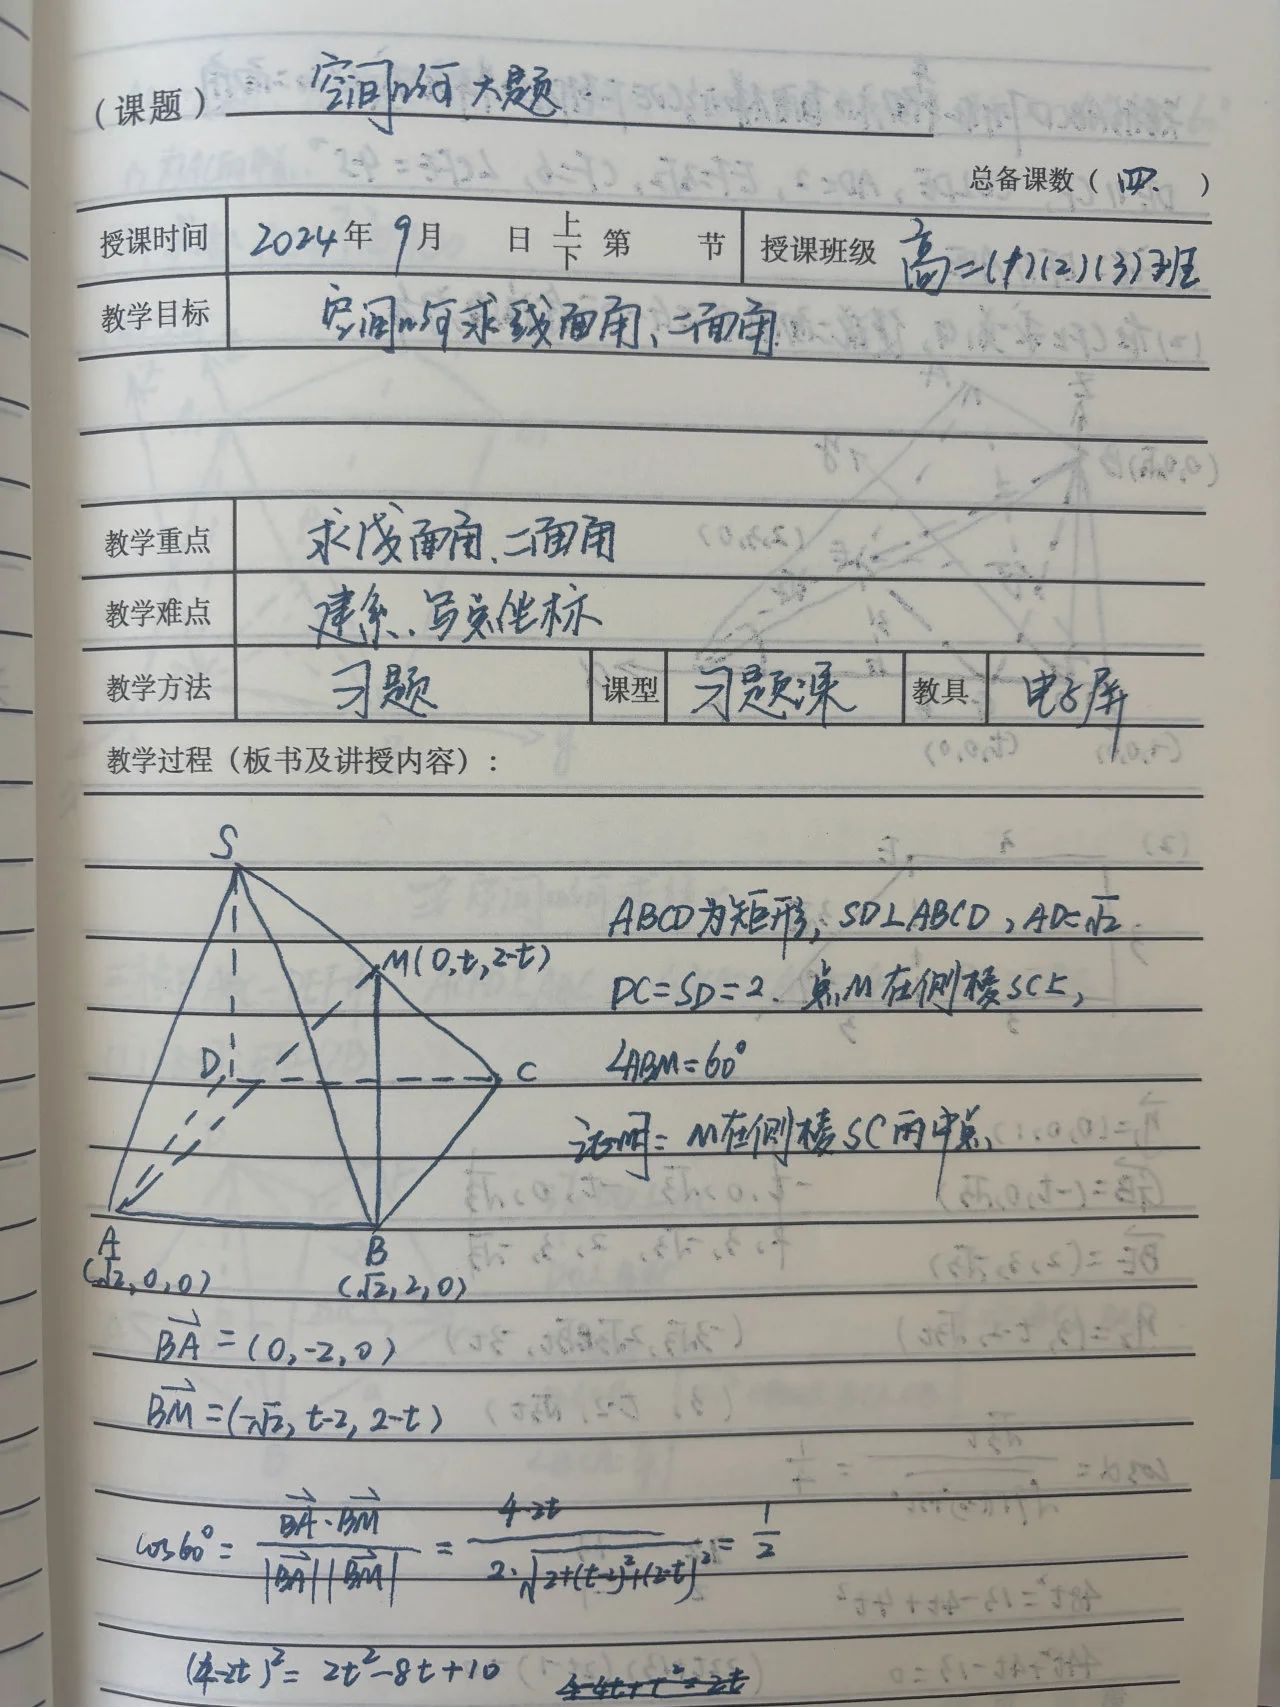 (课题) 空间几何大题
总备课数(四、)
授课时间 2024年 9月 日 上 下 第 节 授课班级 高二(1)(2)(3)班
教学目标 空间几何求线面角、二面角
教学重点 求线面角、二面角
教学难点 建系、写点坐标
教学方法 习题 课型 习题课 教具 电子屏
教学过程(板书及讲授内容):
S
ABCD为矩形, SD⊥ABCD, AD=√2
M(0,t,2-t)
DC=SD=2. 点M在侧棱SC上,
D C
∠ABM=60°
证明: M在侧棱SC的中点
A B
(√2,0,0) (√2,2,0)
BA=(0,-2,0)
BM=(-√2, t-2, 2-t)
cos60°= BA·BM / |BA||BM| = 4-2t / 2·√2+(t-2)²+(2-t)² = 1/2
(4-2t)²= 2t²-8t+10